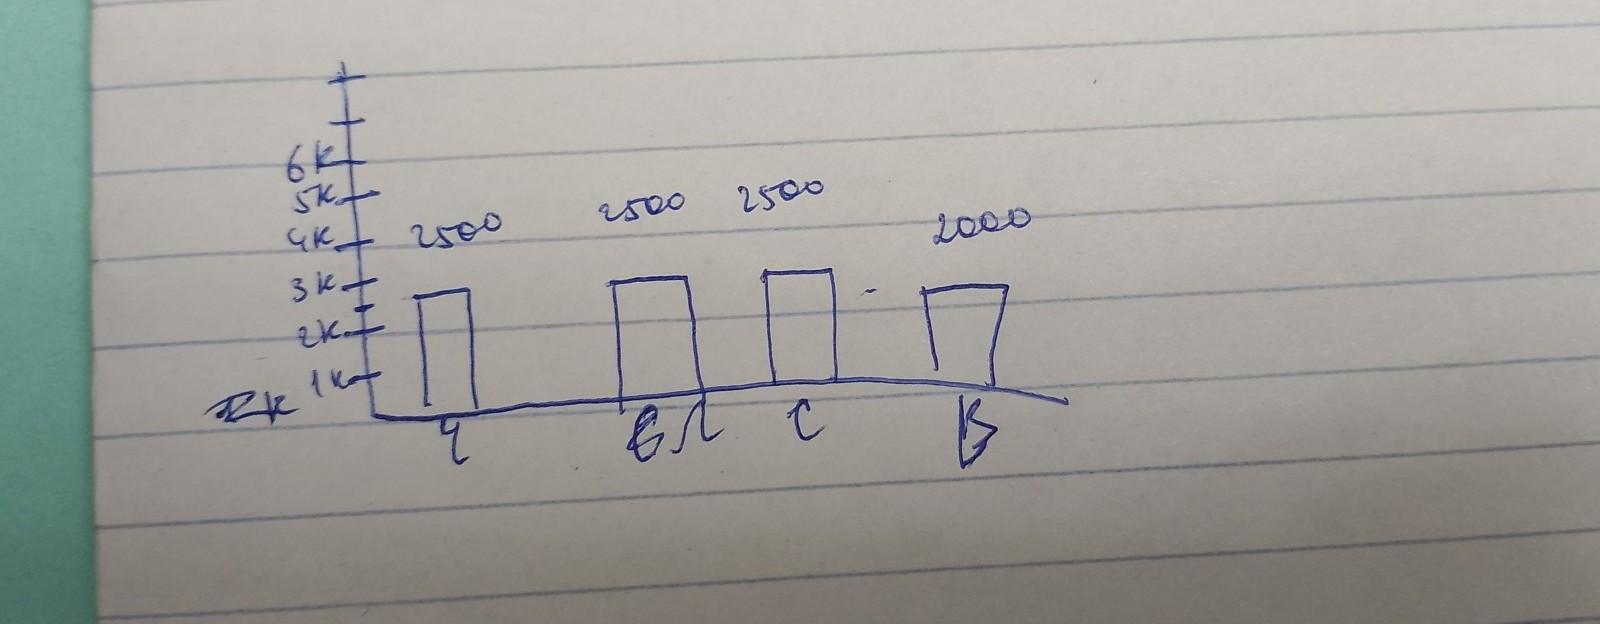 6K
5K
4K
3K
2K
1K
2500 2500 2500 2000
Ч Л С В